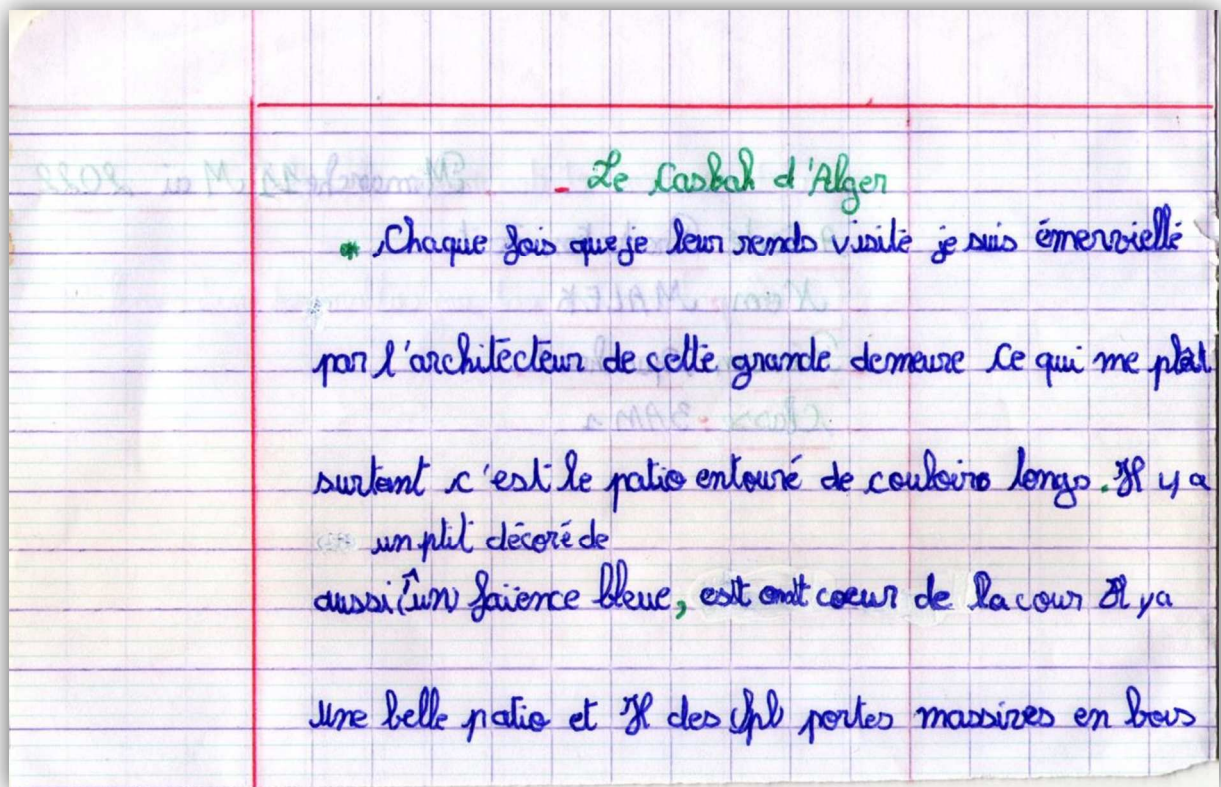 - Le Casbah d'Alger
* Chaque fois que je leur rends visite je suis émervielle
par l'architecteur de cette grande demeure Ce qui me plait
surtant c'est le patio entouré de couloirs longs. Il y a
un ptit décoré de
aussi (un) faïence bleue, est coeur de la cour Il ya
une belle patio et Il des portes massives en bois